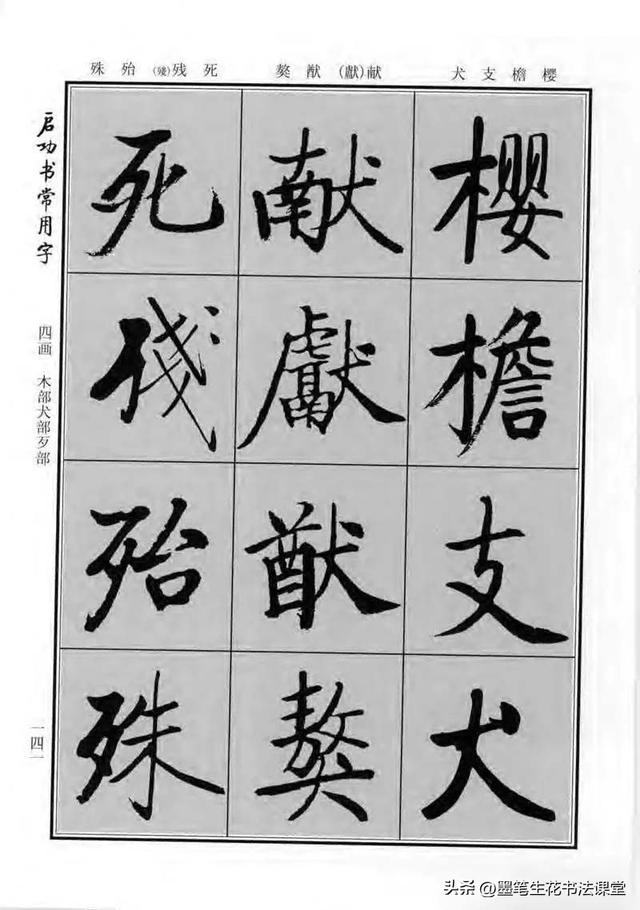 殊 殆 (殘)残 死
獒 猷 (獻)献
犬 支 檐 櫻
启功书常用字
四画 木部犬部歹部
一四一
櫻檐支犬
献獻猷獒
死殘殆殊
头条 @墨笔生花书法课堂